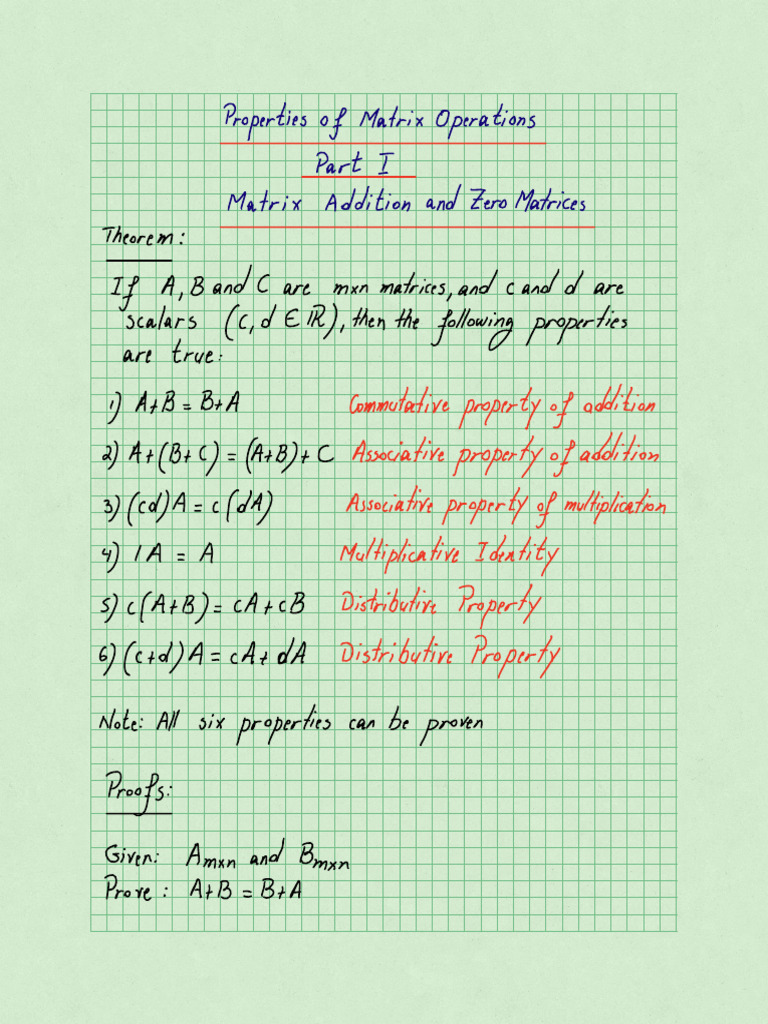 Properties of Matrix Operations
Part I
Matrix Addition and Zero Matrices
Theorem:
If A, B and C are mxn matrices, and c and d are
scalars (c, d ∈ ℝ), then the following properties
are true:
1) A+B = B+A Commutative property of addition
2) A+(B+C) = (A+B)+C Associative property of addition
3) (cd)A = c(dA) Associative property of multiplication
4) 1A = A Multiplicative Identity
5) c(A+B) = cA+cB Distributive Property
6) (c+d)A = cA+dA Distributive Property
Note: All six properties can be proven
Proofs:
Given: Amxn and Bmxn
Prove: A+B = B+A